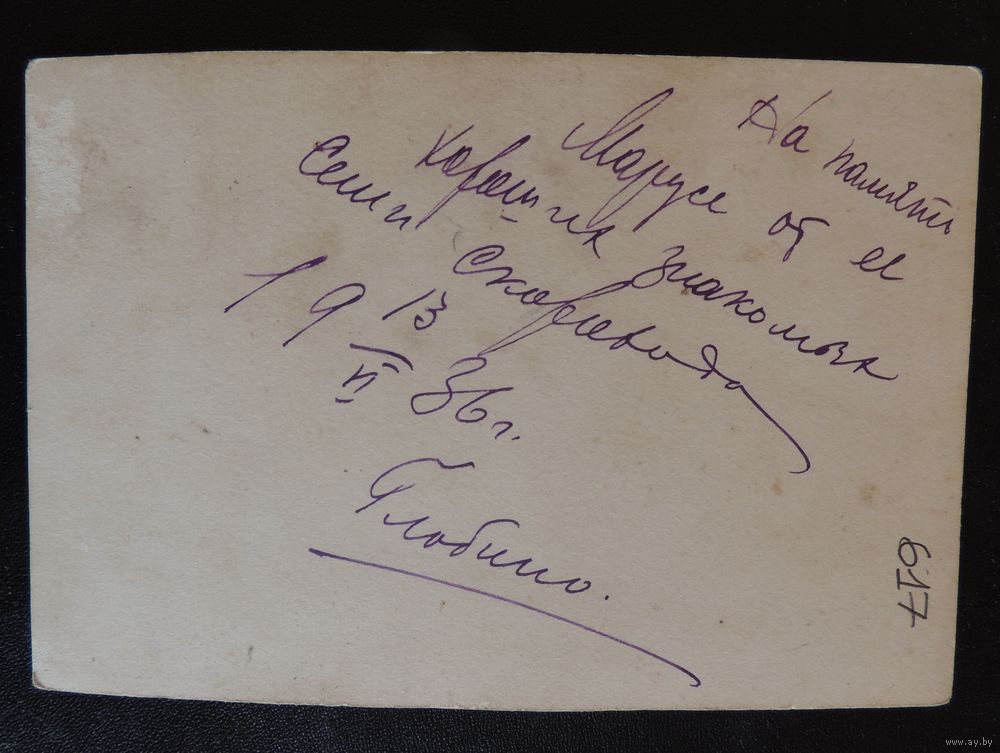 На память
Марусе от ее
хороших знакомых
Семи Сковорода
19 13/II 36 г.
Глобино.
617
www.ay.by